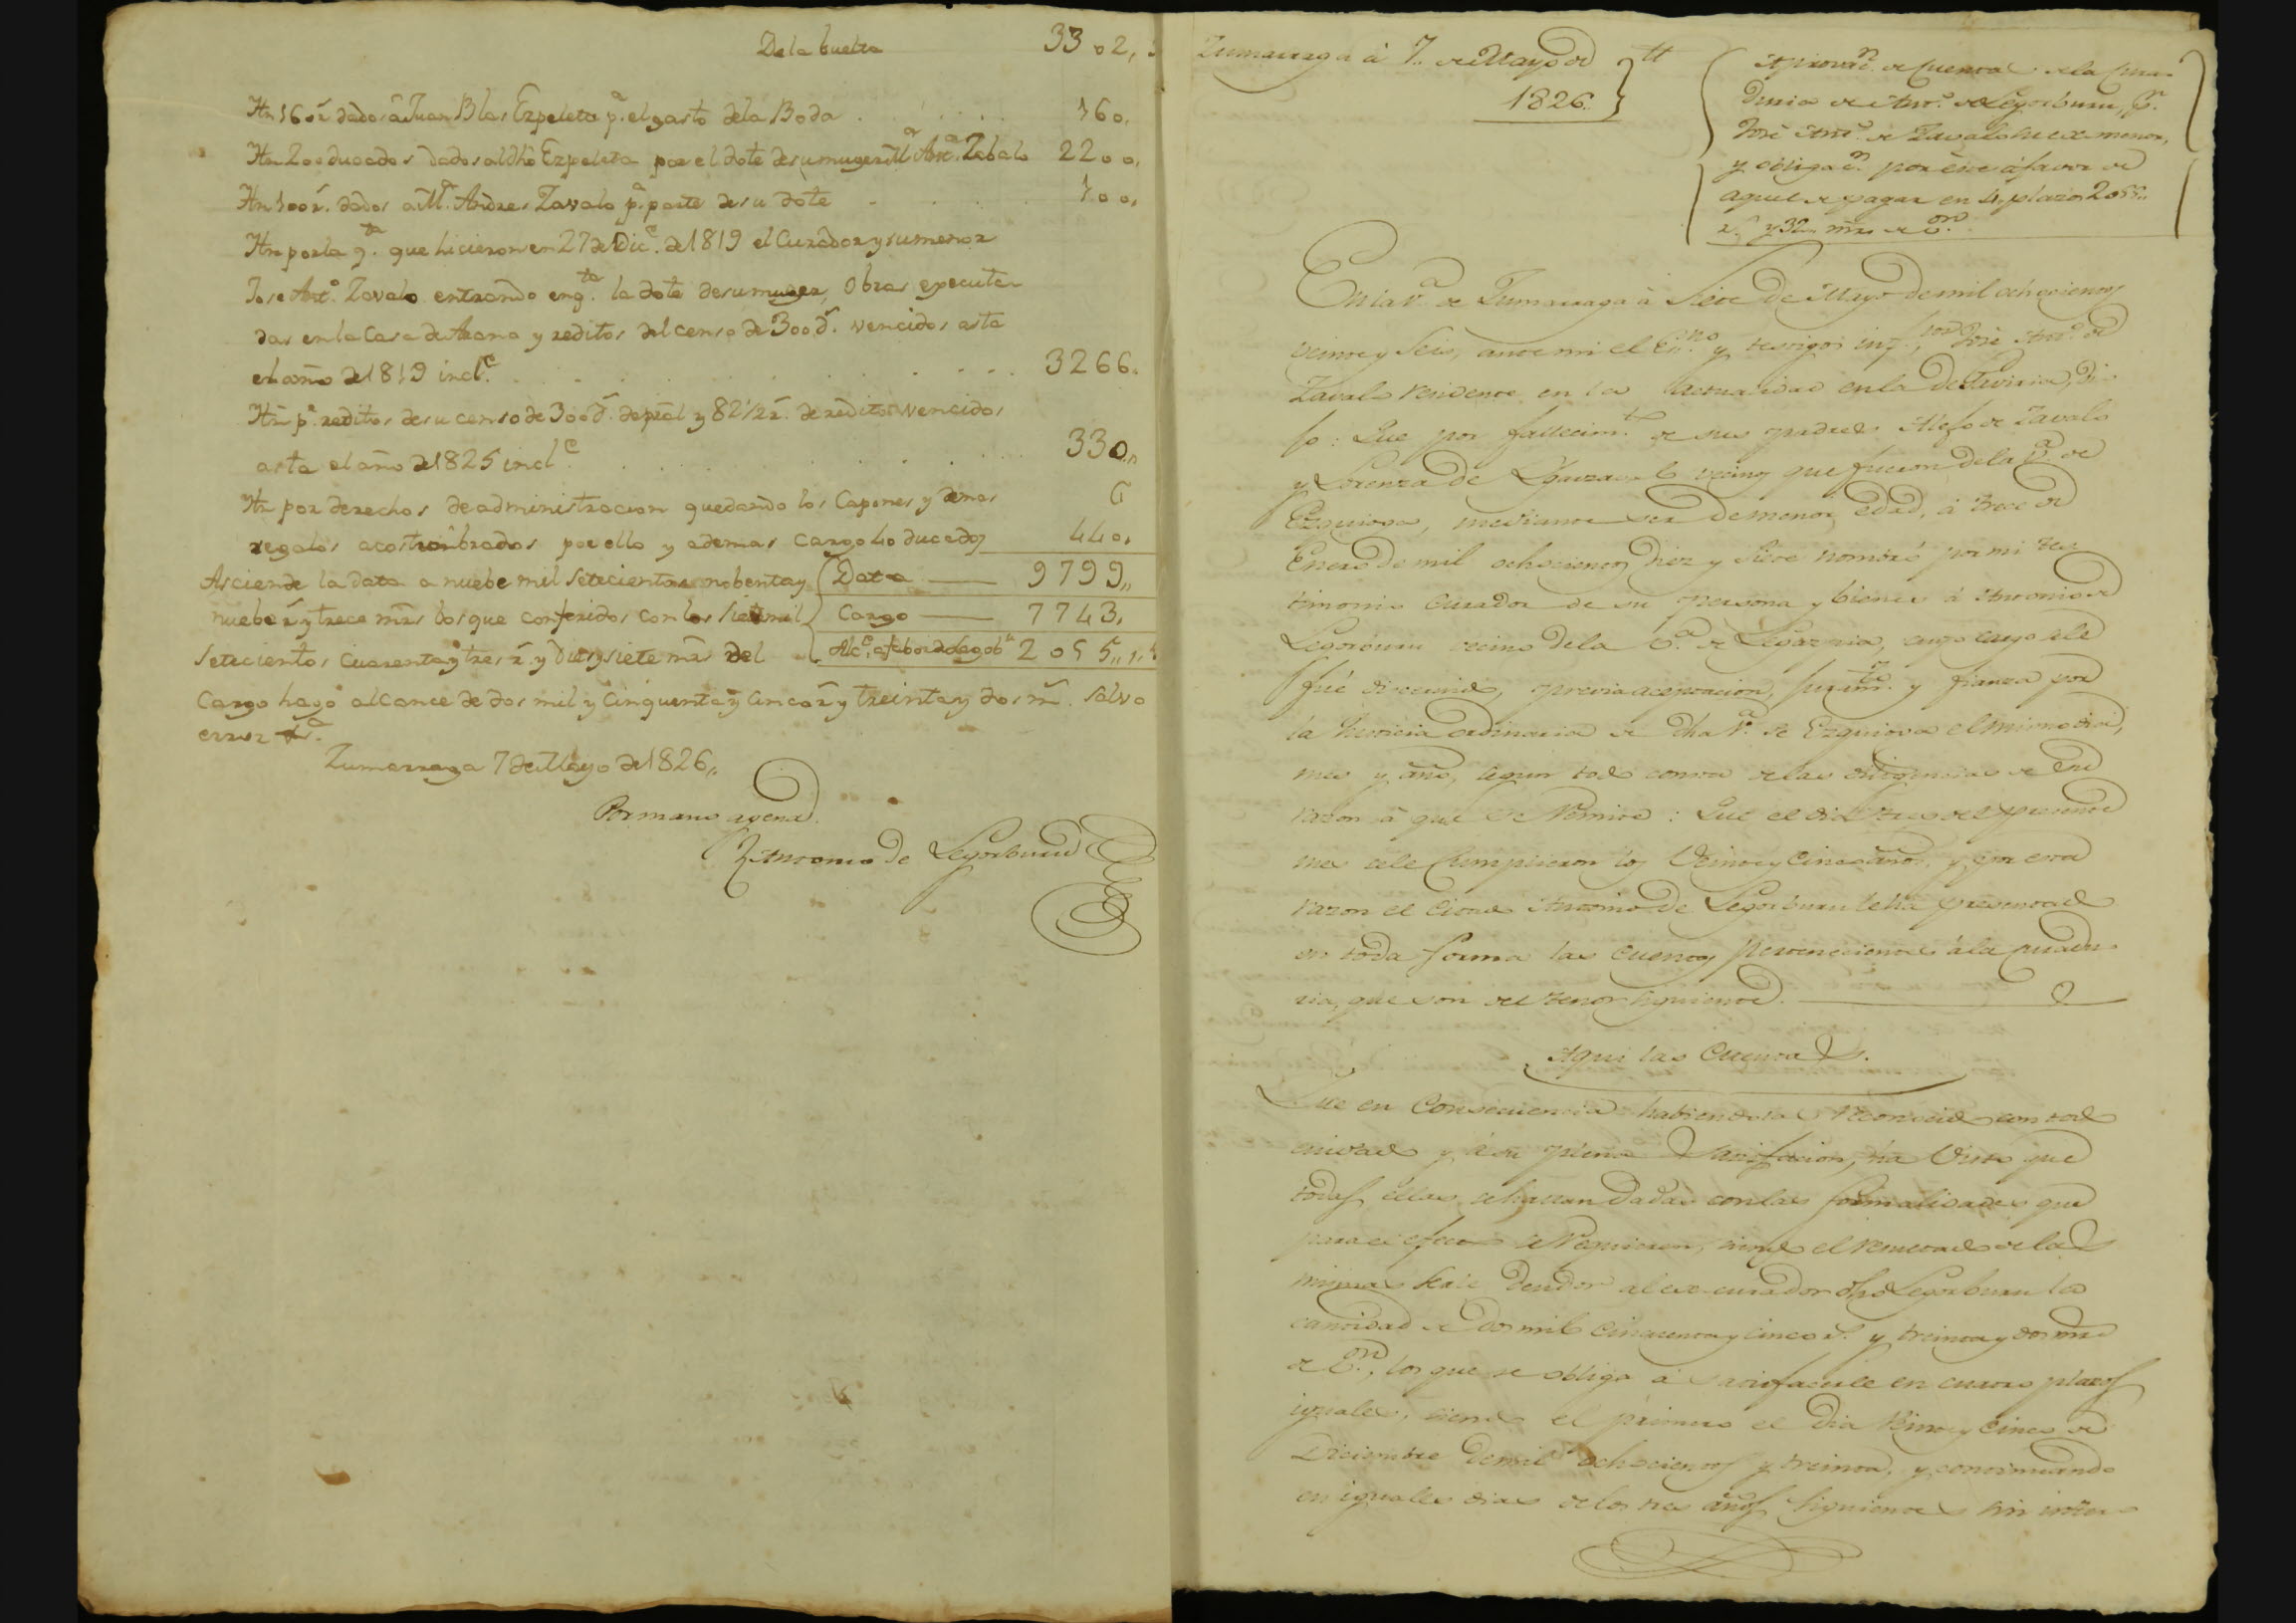 De la buelta 3302,
Itn 160 r.s dados â Juan Blas Ezpeleta p.a el gasto de la Boda . . . . 160,
Itn 200 ducados dados al dho Ezpeleta por el dote de su muger M.a Ant.a Zabalo 2200,
Itn 100 r.s dados a M.a Andres Zavalo p.a parte de su dote . . . . 100,
Itn por la q.ta que hicieron en 27 de Dic.e de 1819 el Curador y su menor
Jose Ant.o Zavalo entrando en q.ta la dote de su muger, Obras executa-
das en la Casa de Arana y reditos del censo de 300 d.s vencidos asta
el año de 1819 incl.e . . . . . . . 3266.
Itn p.r reditos de su censo de 300 d.s de pral y 82 1/2 r.s de reditos vencidos
asta el año de 1825 incl.e . . . . . . . 330,,
Itn por derechos de administracion quedando los Capones y demas
regalos acostumbrados por ello y ademas cargo 40 ducados 440,
Asciende la data a nuebe mil setecientos nobenta y Data —— 9799,,
nuebe r.s y trece mrs los que conferidos con los siete mil Cargo —— 7743,
setecientos cuarenta y tres r.s y diez y siete mrs del Alc.e a fabor de Legorb.u 2055,,
Cargo hago alcance de dos mil y cinquenta y cinco r.s y treinta y dos m.s salvo
error
Zumarraga 7 de Mayo de 1826,,
Por mano agena
Antonio de Legorburu
Zumarraga à 7,, de Mayo de
1826.
Aprovac.n de Cuentas de la Cura-
duria de Ant.o de Legorburu, p.r
José Ant.o de Zavalo su ex menor,
y obligac.n por éste á favor de
aquel de pagar en 4 plazos 2055,,
r.s y 32 mrs de v.on
En la V.a de Zumarraga à Siete de Mayo de mil ochocientos
veinte y Seis, ante mi el Es.no y testigos inf.tos José Ant.o de
Zavalo residente en la actualidad en la de Placencia, di-
jo: Que por fallecim.to de sus padres Alejo de Zavalo
y Lorenza de vecinos que fueron de la V.a de
Ezquioga, mediante ser de menor edad, á trece de
Enero de mil ochocientos diez y siete nombró por mi tes-
timonio Curador de su persona y bienes á Antonio de
Legorburu vecino de la V.a de Legazpia, cuyo cargo se le
fué discernido, previa aceptacion, juram.to y fianza por
la Justicia ordinaria de dha V.a de Ezquioga el mismo dia,
mes y año, segun todo consta de las diligencias de su
razon á que se remite: Que el dia tres del presente
mes se le cumplieron los Veinte y Cinco años, y por esta
razon el citado Antonio de Legorburu le ha presentado
en toda forma las cuentas pertenecientes á la curadu-
ria, que son del tenor siguiente.
Aqui las Cuentas.
Que en Consecuencia habiendolas reconocido con todo
cuidado y á su plena satisfacion, ha visto que
todas ellas se hallan dadas con las formalidades que
para el efecto se requieren, siendo el resultado de las
mismas salir deudor al ex-curador dho Legorburu la
cantidad de dos mil cincuenta y cinco r.s y treinta y dos mrs
de v.on, los que se obliga á satisfacerle en cuatro plazos
iguales, siendo el primero el dia Veinte y Cinco de
Diciembre de mil ochocientos y treinta, y continuando
en iguales dias de los tres años siguientes sin inter-